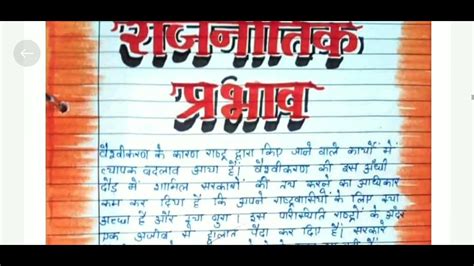 राजनीतिक
प्रभाव
वैश्वीकरण के कारण राष्ट्र द्वारा किए जाने वाले कार्यो में
व्यापक बदलाव आया है। वैश्वीकरण की इस अंधी
दौड़ में शामिल सरकारों की तय करने का अधिकार
कम कर दिया है कि अपने राष्ट्रवासियों के लिए क्या
अच्छा है और क्या बुरा। इस परिस्थिति राष्ट्रों के अंदर
एक अजीब से हालात पैदा कर दिए हैं। सरकार